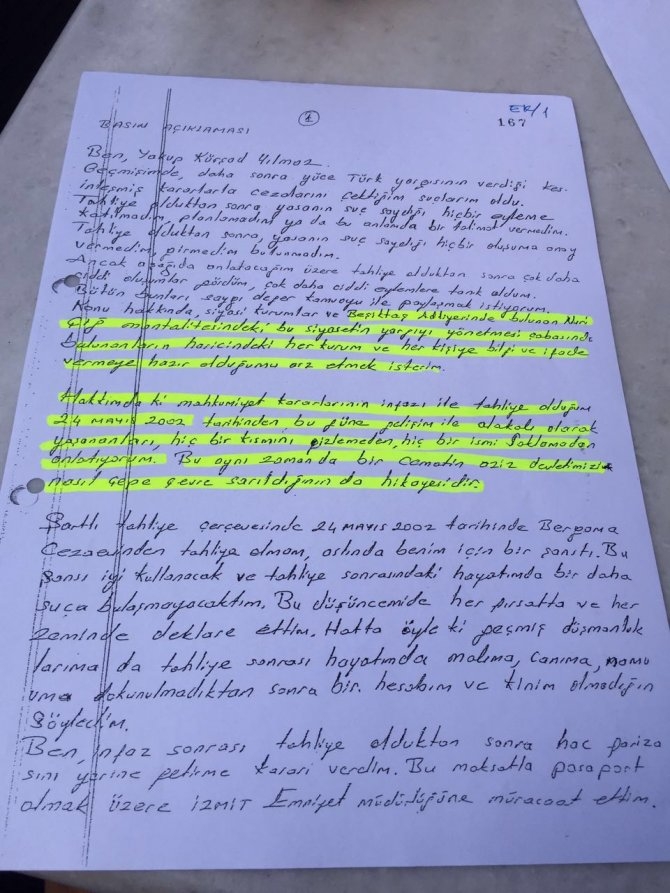 EK/1
1
167
BASIN AÇIKLAMASI
Ben, Yakup Kürşad Yılmaz.
Geçmişimde, daha sonra yüce Türk yargısının verdiği kes-
inleşmiş kararlarla cezalarını çektiğim suçlarım oldu.
Tahliye olduktan sonra yasanın suç saydığı hiçbir eyleme
katılmadım, planlamadım ya da bu anlamda bir talimat vermedim.
Tahliye olduktan sonra, yasanın suç saydığı hiçbir oluşuma onay
vermedim, girmedim bulunmadım.
Ancak aşağıda anlatacağım üzere tahliye olduktan sonra çok daha
ciddi oluşumlar gördüm, çok daha ciddi eylemlere tanık oldum.
Bütün bunları saygı değer kamuoyu ile paylaşmak istiyorum.
Konu hakkında, siyasi kurumlar ve Beşiktaş Adliyerinde bulunan Nuri
mantalitesindeki bu siyasetin yargıyı yönetmesi çabasında
bulunanların haricindeki her kurum ve her kişiye bilgi ve ifade
vermeye hazır olduğumu arz etmek isterim.
Hakkımda ki mahkumiyet kararlarının infazı ile tahliye olduğum
24 MAYIS 2002 tarihinden, bu güne gelişim ile alakalı olarak
yaşananları, hiç bir kısmını gizlemeden, hiç bir ismi saklamadan
anlatıyorum. Bu aynı zamanda bir Cematin aziz devletimizi
nasıl çepe çevre sarıldığının da hikayesidir.
Şartlı tahliye çerçevesinde 24 MAYIS 2002 tarihinde Bergama
Cezaevinden tahliye olmam, aslında benim için bir şanstı. Bu
şansı iyi kullanacak ve tahliye sonrasındaki hayatımda bir daha
suça bulaşmayacaktım. Bu düşüncemide her fırsatta ve her
zeminde deklare ettim. Hatta öyle ki geçmiş düşmanlık
larıma da tahliye sonrası hayatımda malıma, canıma, namu
uma dokunulmadıktan sonra bir hesabım ve kinim olmadığın
söyledim.
Ben, infaz sonrası tahliye olduktan sonra hac fariza
sını yerine getirme kararı verdim. Bu maksatla pasaport
olmak üzere İZMİT Emniyet müdürlüğüne müracaat ettim.